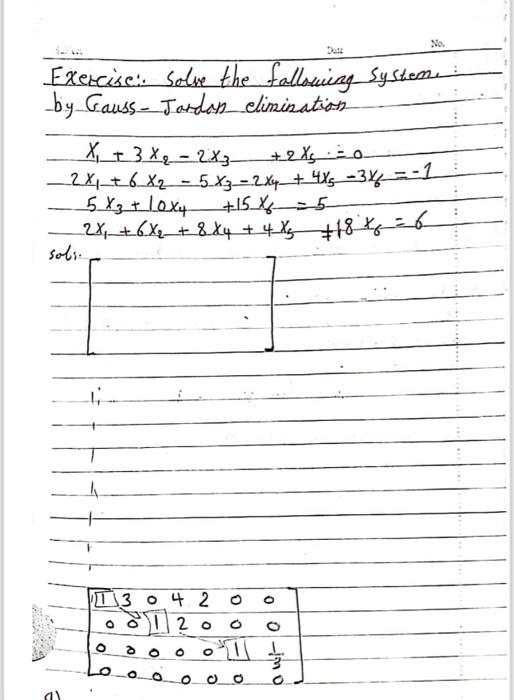 Date No.
Exercise:. Solve the fallowing system.
by Gauss - Jordan elimination
X₁ + 3 X₂ - 2 X₃ + 2 X₅ = 0
2 X₁ + 6 X₂ - 5 X₃ - 2 X₄ + 4 X₅ - 3 X₆ = -1
5 X₃ + 10 X₄ + 15 X₆ = 5
2 X₁ + 6 X₂ + 8 X₄ + 4 X₅ + 18 X₆ = 6
sol:.
1 3 0 4 2 0 0
0 0 1 2 0 0 0
0 0 0 0 0 1 1/3
0 0 0 0 0 0 0